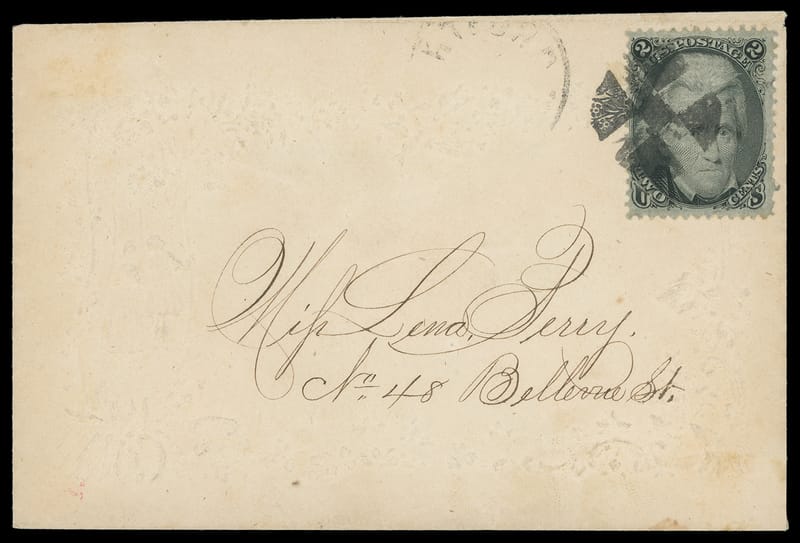 2 2
U.S. POSTAGE
TWO CENTS
U S
Miss Lena Perry.
No. 48 Bellevue St.